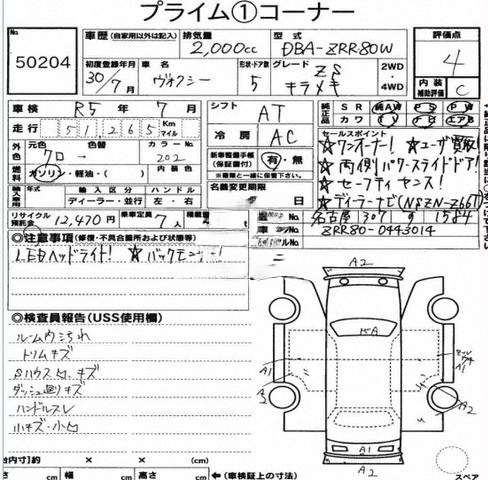 プライム①コーナー
No. 50204
車歴 (自家用以外は記入) 排気量 2,000cc 型式 DBA-ZRR80W 評価点 4
初度登録年月 30年/7月 車名 ヴォクシー 形状・ドア数 5 グレード ZS キラメキ 2WD・4WD 内装補助評価 C
車検 R5年7月 シフト AT 純正品 SR 純AW PS PW
走行 51265 Km マイル 冷房 AC カワ TV ナビ エアB
外色 元色 クロ 色替 カラーNo. 202 新車整備手帳(保証書) 有・無
セールスポイント
☆ワンオーナー! ☆ユーザー買取
燃料 ガソリン・軽油・( ) 内装色 ※商品と一緒に保管
☆両側パワースライドドア!
輸入車 年式 輸入区分 ディーラー・並行 ハンドル 左・右 名義変更期限 日
☆セーフティセンス!
☆ディーラーナビ(NSZN-Z66T)
リサイクル預託金 12,470円 乗車定員 7人 積載量
名古屋 307 1584
ZRR80-0443014
◎注意事項 (修復・不具合箇所および状態等)
LEDヘッドライト! ☆バックモニター!
◎検査員報告(USS使用欄)
ルームウラよごれ
トリムキズ
Sハウス凹、キズ
ダッシュ廻りキズ
ハンドルスレ
小キズ・小凹
A2
A
A1
A2
A1
A2
A1
A2
台内寸約 × × (cm)
長さ (cm) 幅 (cm) 高さ (cm) ←(車検証上の寸法)
スペア